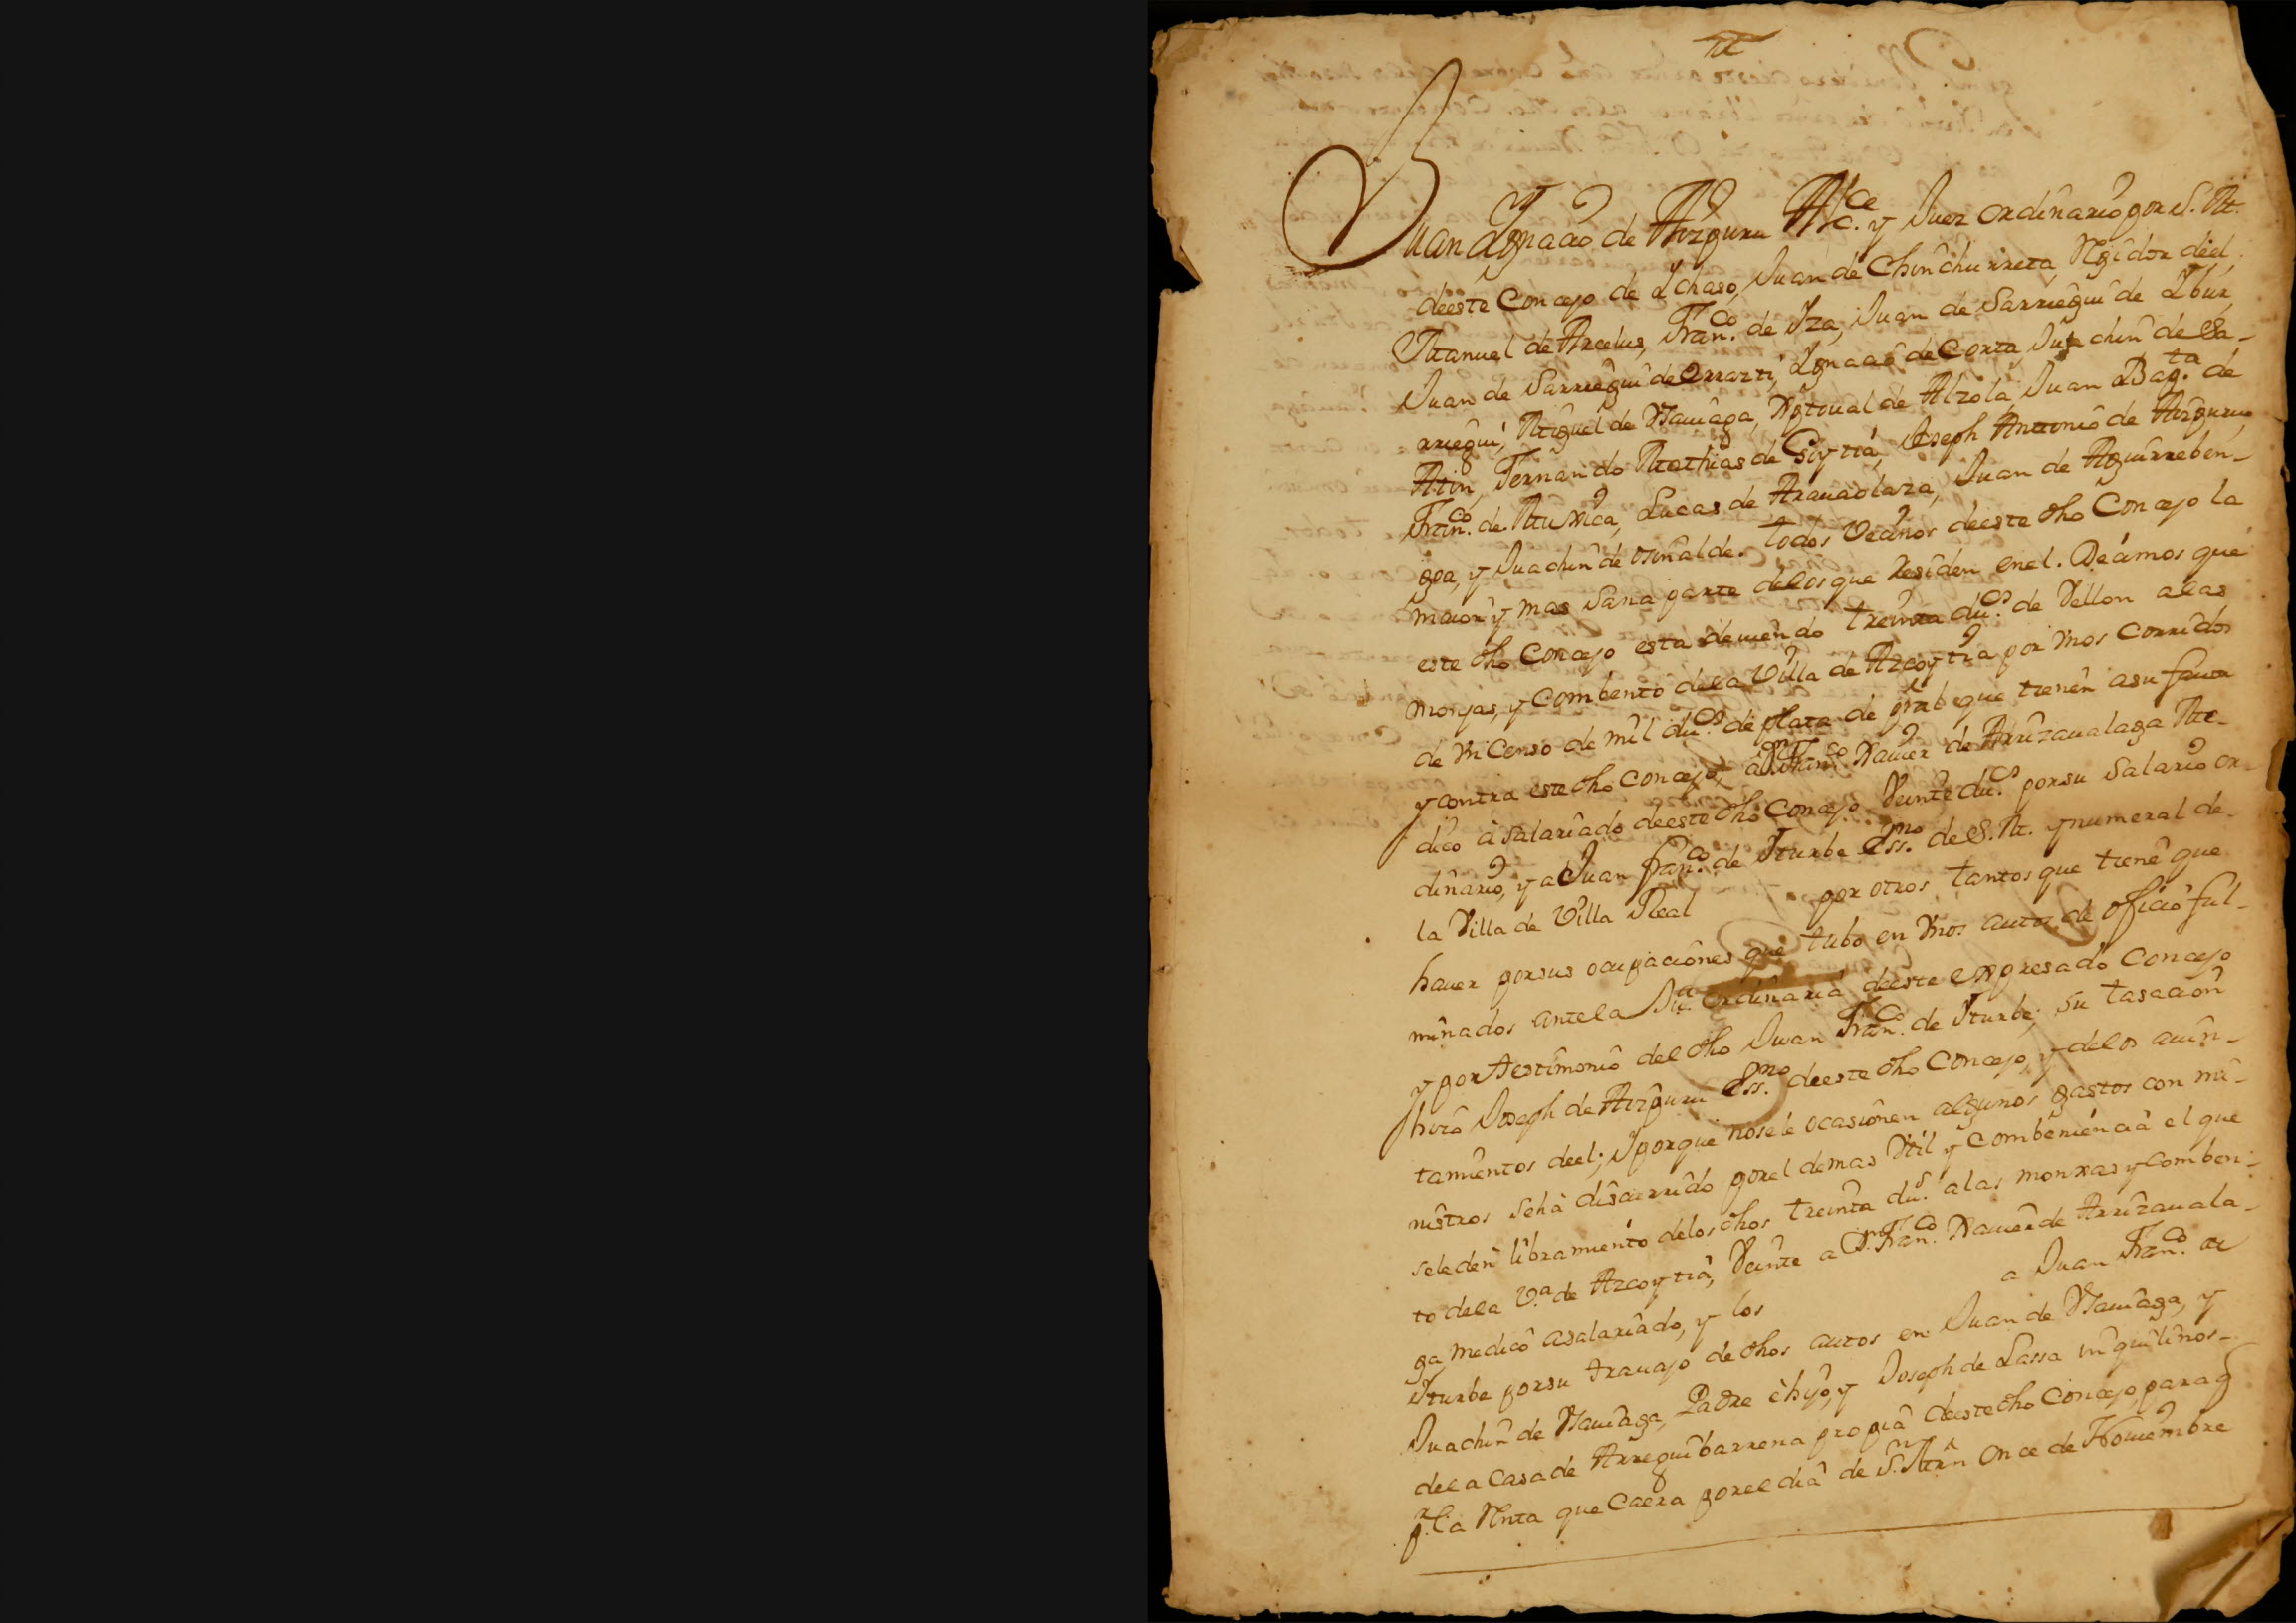 Juan Ygnacio de Aizpuru Alce. y Juez ordinario por S. M.
deeste Concejo de Ichaso, Juan de Chinchurreta Rexidor deel
Manuel de Arcelus, Franco. de Yza, Juan de Sarriegui de Ibur,
Juan de Sarriegui de Orrazti, Ignacio de Corta, Juachin de Sa-
rriegui, Miguel de Mauiaga, Xptoual de Alzola, Juan Bapta. de
Min, Fernando Mathias de Goytia, Joseph Antonio de Aizpuru
Frnco. de Muxica, Lucas de Aramaolaza, Juan de Aguirreben-
goa, y Juachin de osinalde. todos Vecinos deeste dho Concejo la
maior y mas Sana parte delos que Residen enel. Decimos que
este dho Concejo esta deuiendo treinta dus. de Vellon alas
monjas, y Combento dela Villa de Azcoytia por vnos Corridos
de vn Censo de mil dus. de plata de pral que tienen asu fauor
y contra este dho Concejo, a Dn. Franco. Xauier de Arrizaualaga Me-
dico asalariado deeste dho Concejo Veinte dus. porsu Salario or-
dinario, y a Juan franco. de Yturbe essno. de S. M. y numeral de
la Villa de Villa Real por otros tantos que tiene que
hauer porsus ocupaciones que tubo en vnos autos de oficio ful-
minados antela Jua. ordinaria deeste expresado Concejo
y por testimonio del dho Juan Franco. de Yturbe, su tasacion
hizo Joseph de Aizpuru essno. deeste dho Concejo, y delos auin-
tamientos deel; Y porque nosele ocasionen algunos gastos con mi-
nistros Seha discurrido porel demas Vtil y Combeniencia el que
seleden libramiento delos dhos treinta dus. alas monxas y Comben-
to dela Va. de Azcoytia, Veinte a Dn. Franco. Xauier de Arrizauala-
ga medico asalariado, y los a Juan Franco. de
Yturbe porsu trauajo de dhos autos en Juan de Mauiaga, y
Juachin de Mauiaga, Padre è hijo, y Joseph de Lassa inquilinos-
dela Casa de Arreguibarrena propia deeste dho Concejo, para q
pr. la Renta que Caera porel dia de Sn. Mrn once de Nouiembre